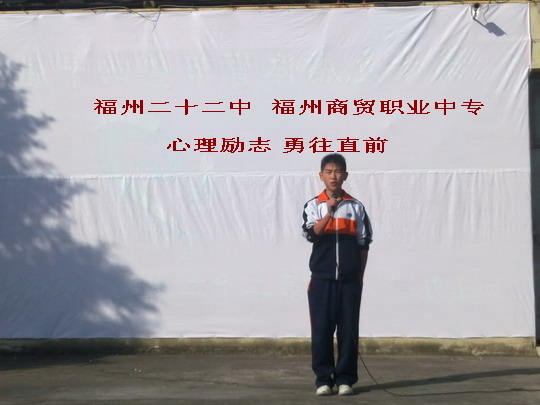 福州二十二中 福州商贸职业中专
心理励志 勇往直前